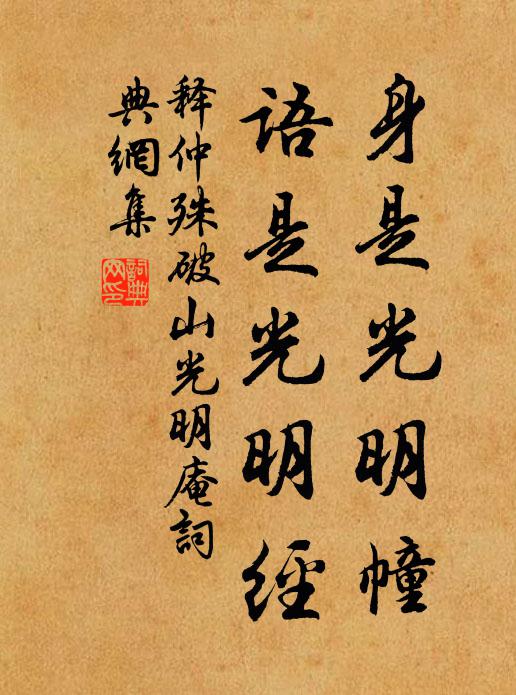 身是光明幢
语是光明經
释仲殊破山光明庵詞
典網集
詞典網印